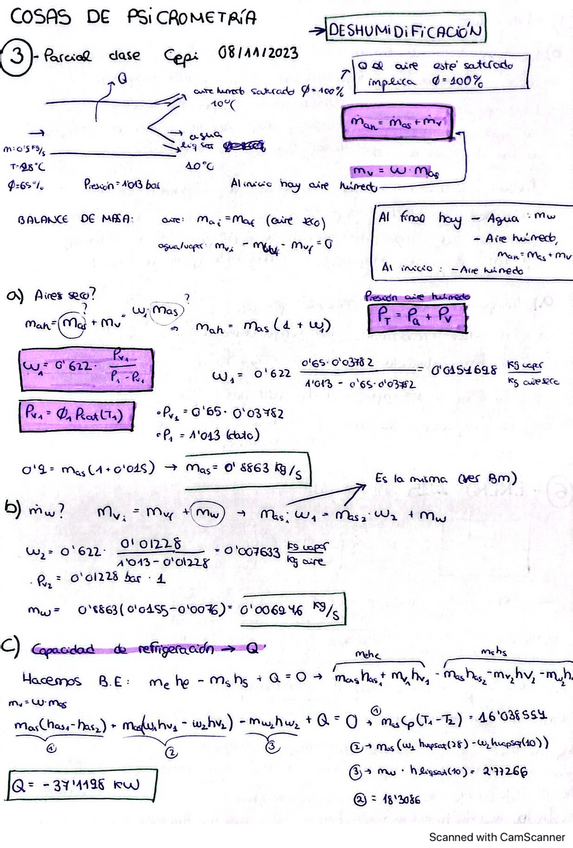 COSAS DE PSICROMETRÍA
→ DESHUMIDIFICACIÓN
③ - Parcial clase Cepi 08/11/2023
Q
aire húmedo saturado Φ=100%
10°C
Q el aire esté saturado
implica Φ=100%
ṁah = ṁas + ṁv
agua
10°C
T=28°C
Φ=65%
Presión=1'013 bar
Al inicio hay aire húmedo
mv = ω · mas
BALANCE DE MASA: aire: mai = maf (aire seco)
Al final hay - Agua : mw
- Aire húmedo,
mah = mas + mv
Al inicio : - Aire húmedo
a) Aire seco?
mah = mai + mv = ω · mas ?
mah = mas (1 + ω)
Presión aire húmedo
PT = Pa + Pv
ω1 = 0'622 · Pv1 / P1 - Pv1
ω1 = 0'622 0'65·0'03782 / 1'013 - 0'65·0'03782 = 0'0151698 kg vapor / kg aire seco
Pv1 = Φ1 Psat(T1)
• Pv1 = 0'65 · 0'03782
• P1 = 1'013 (dato)
0'9 = mas (1 + 0'015) → mas = 0'8863 kg/s
Es la misma (ver BM)
b) ṁw? mvi = mvf + mw → mas1 ω1 = mas2 · ω2 + mw
ω2 = 0'622 · 0'01228 / 1'013 - 0'01228 = 0'007633 kg vapor / kg aire
· Pv2 = 0'01228 bar · 1
mw = 0'8863 (0'0155 - 0'0076) = 0'006946 kg/s
c) Capacidad de refrigeración → Q
mehe
mshs
Hacemos B.E: me he - ms hs + Q = 0 → mas has1 + mv1 hv1 - mas has2 - mv2 hv2 - mw h
mv = ω · mas
mas(has1 - has2) + mas(ω1 hv1 - ω2 hv2) - mw2 hw2 + Q = 0
① ② ③
① → mas Cp (T1 - T2) = 16'038551
② → mas (ω1 hvapsat(28) - ω2 hvapsat(10))
③ → mw · h liqsat(10) = 2'77266
② = 18'3086
Q = - 37'1198 KW
Scanned with CamScanner